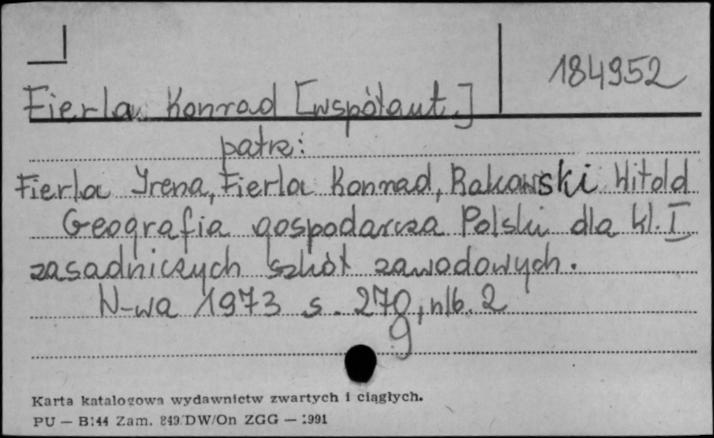 184952
Fierla Konrad [współaut.]
patrz:
Fierla Irena, Fierla Konrad, Rakowski Witold
Geografia gospodarcza Polski dla kl. I
zasadniczych szkół zawodowych.
W-wa 1973 s. 279, nlb. 2
9
Karta katalogowa wydawnictw zwartych i ciągłych.
PU — B:44 Zam. 849/DW/On ZGG — 1991